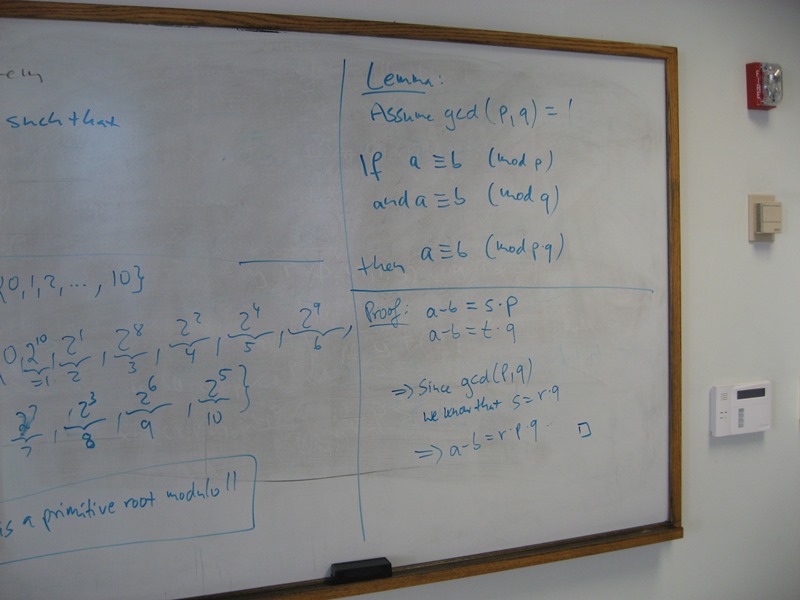 such that
{0,1,2,..., 10}
0, 2^10, 2^1, 2^8, 2^2, 2^4, 2^9,
=1 2 3 4 5 6
2^7, 2^3, 2^6, 2^5 }
7 8 9 10
is a primitive root modulo 11
Lemma:
Assume gcd(p,q) = 1
If a ≡ b (mod p)
and a ≡ b (mod q)
then a ≡ b (mod p·q)
Proof: a-b = s·p
a-b = t·q
=> Since gcd(p,q)
we know that s=r·q
=> a-b = r·p·q □